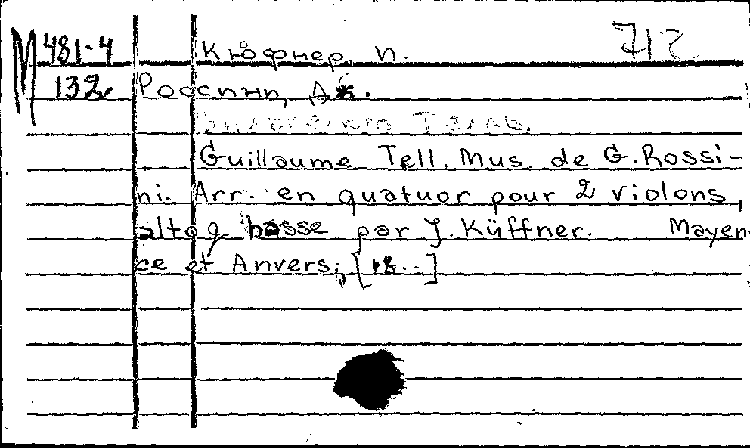 М 481-4 Кюфнер, И. 712
132 Россини, Дж.
Вильгельм Телль.
Guillaume Tell. Mus. de G. Rossi-
ni. Arr. en quatuor pour 2 violons,
alto & basse par J. Küffner. Mayen-
ce et Anvers, [18..]